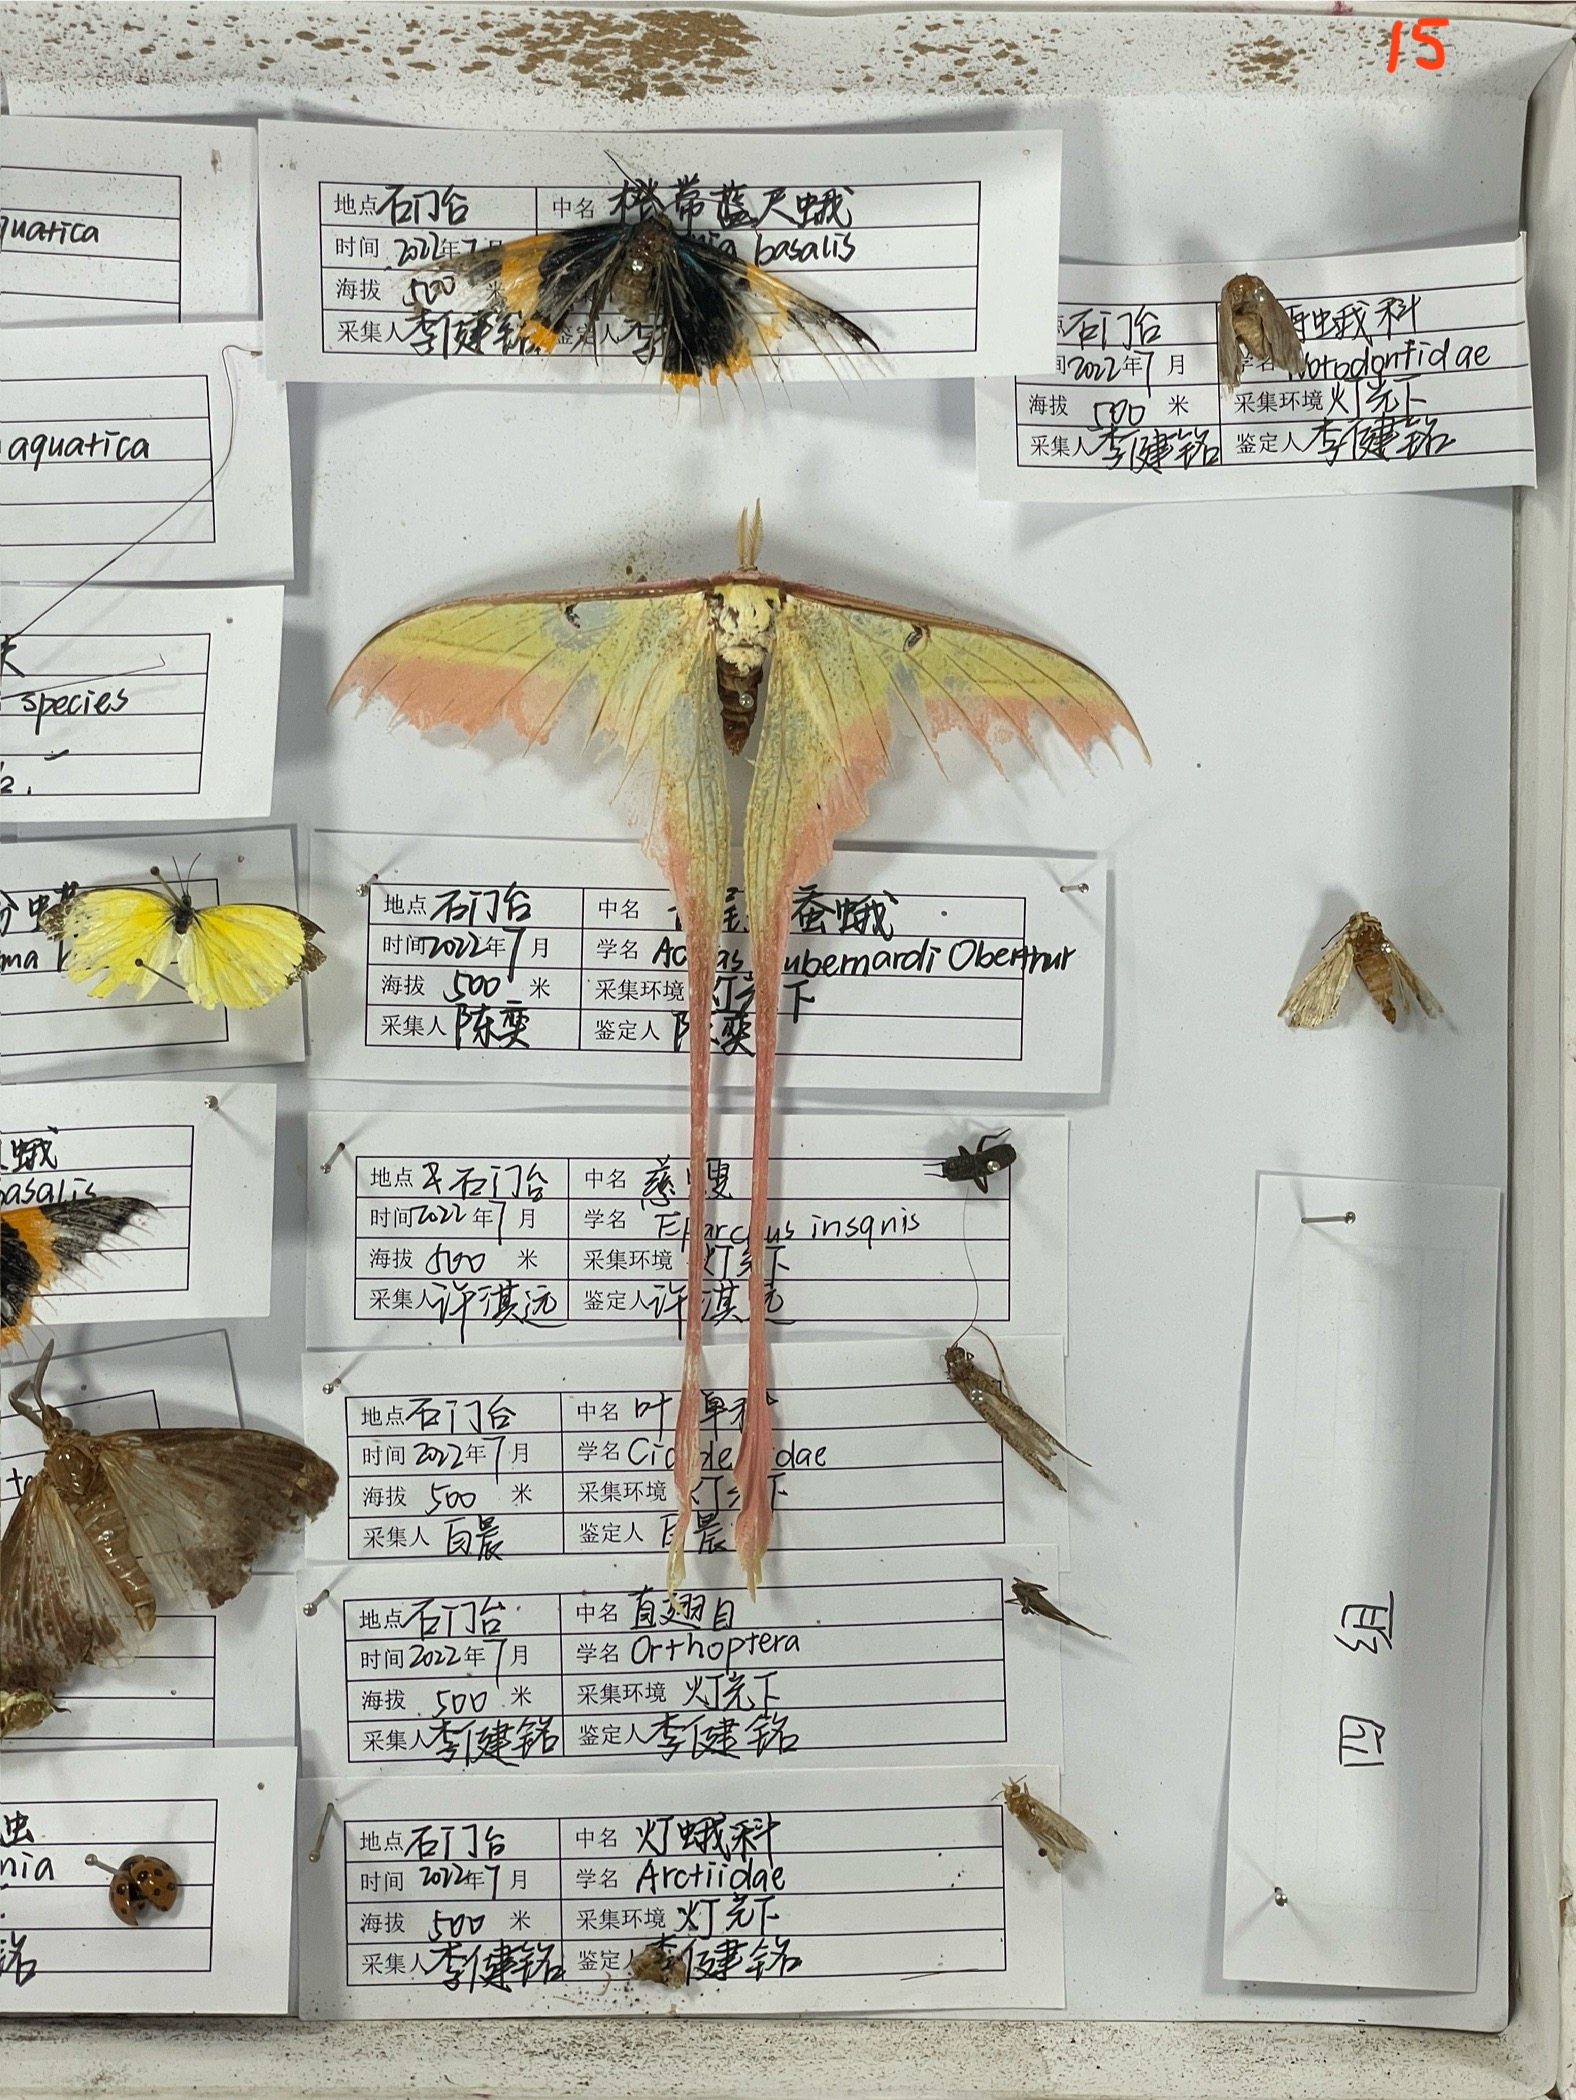 15
地点 石门台 中名 橙带蓝尺蛾
时间 2022年7月 basalis
海拔 500 米
采集人 李健铭 鉴定人 李
石门台 蛾科
2022年7月 学名 Notodontidae
海拔 500 米 采集环境 灯光下
采集人 李健铭 鉴定人 李健铭
quatica
aquatica
species
地点 石门台 中名 蚕蛾
时间 2022年7月 学名 Oberthur
海拔 500 米 采集环境 灯光下
采集人 陈奕 鉴定人 陈奕
蛾
basalis
地点 石门台 中名
时间 2022年7月 学名 insgnis
海拔 500 米 采集环境 灯光下
采集人 许淇远 鉴定人 许淇远
地点 石门台 中名 叶
时间 2022年7月 学名
海拔 500 米 采集环境 灯光下
采集人 白晨 鉴定人 白晨
地点 石门台 中名 直翅目
时间 2022年7月 学名 Orthoptera
海拔 500 米 采集环境 灯光下
采集人 李健铭 鉴定人 李健铭
虫
nia
铭
地点 石门台 中名 灯蛾科
时间 2022年7月 学名 Arctiidae
海拔 500 米 采集环境 灯光下
采集人 李健铭 鉴定人 李健铭